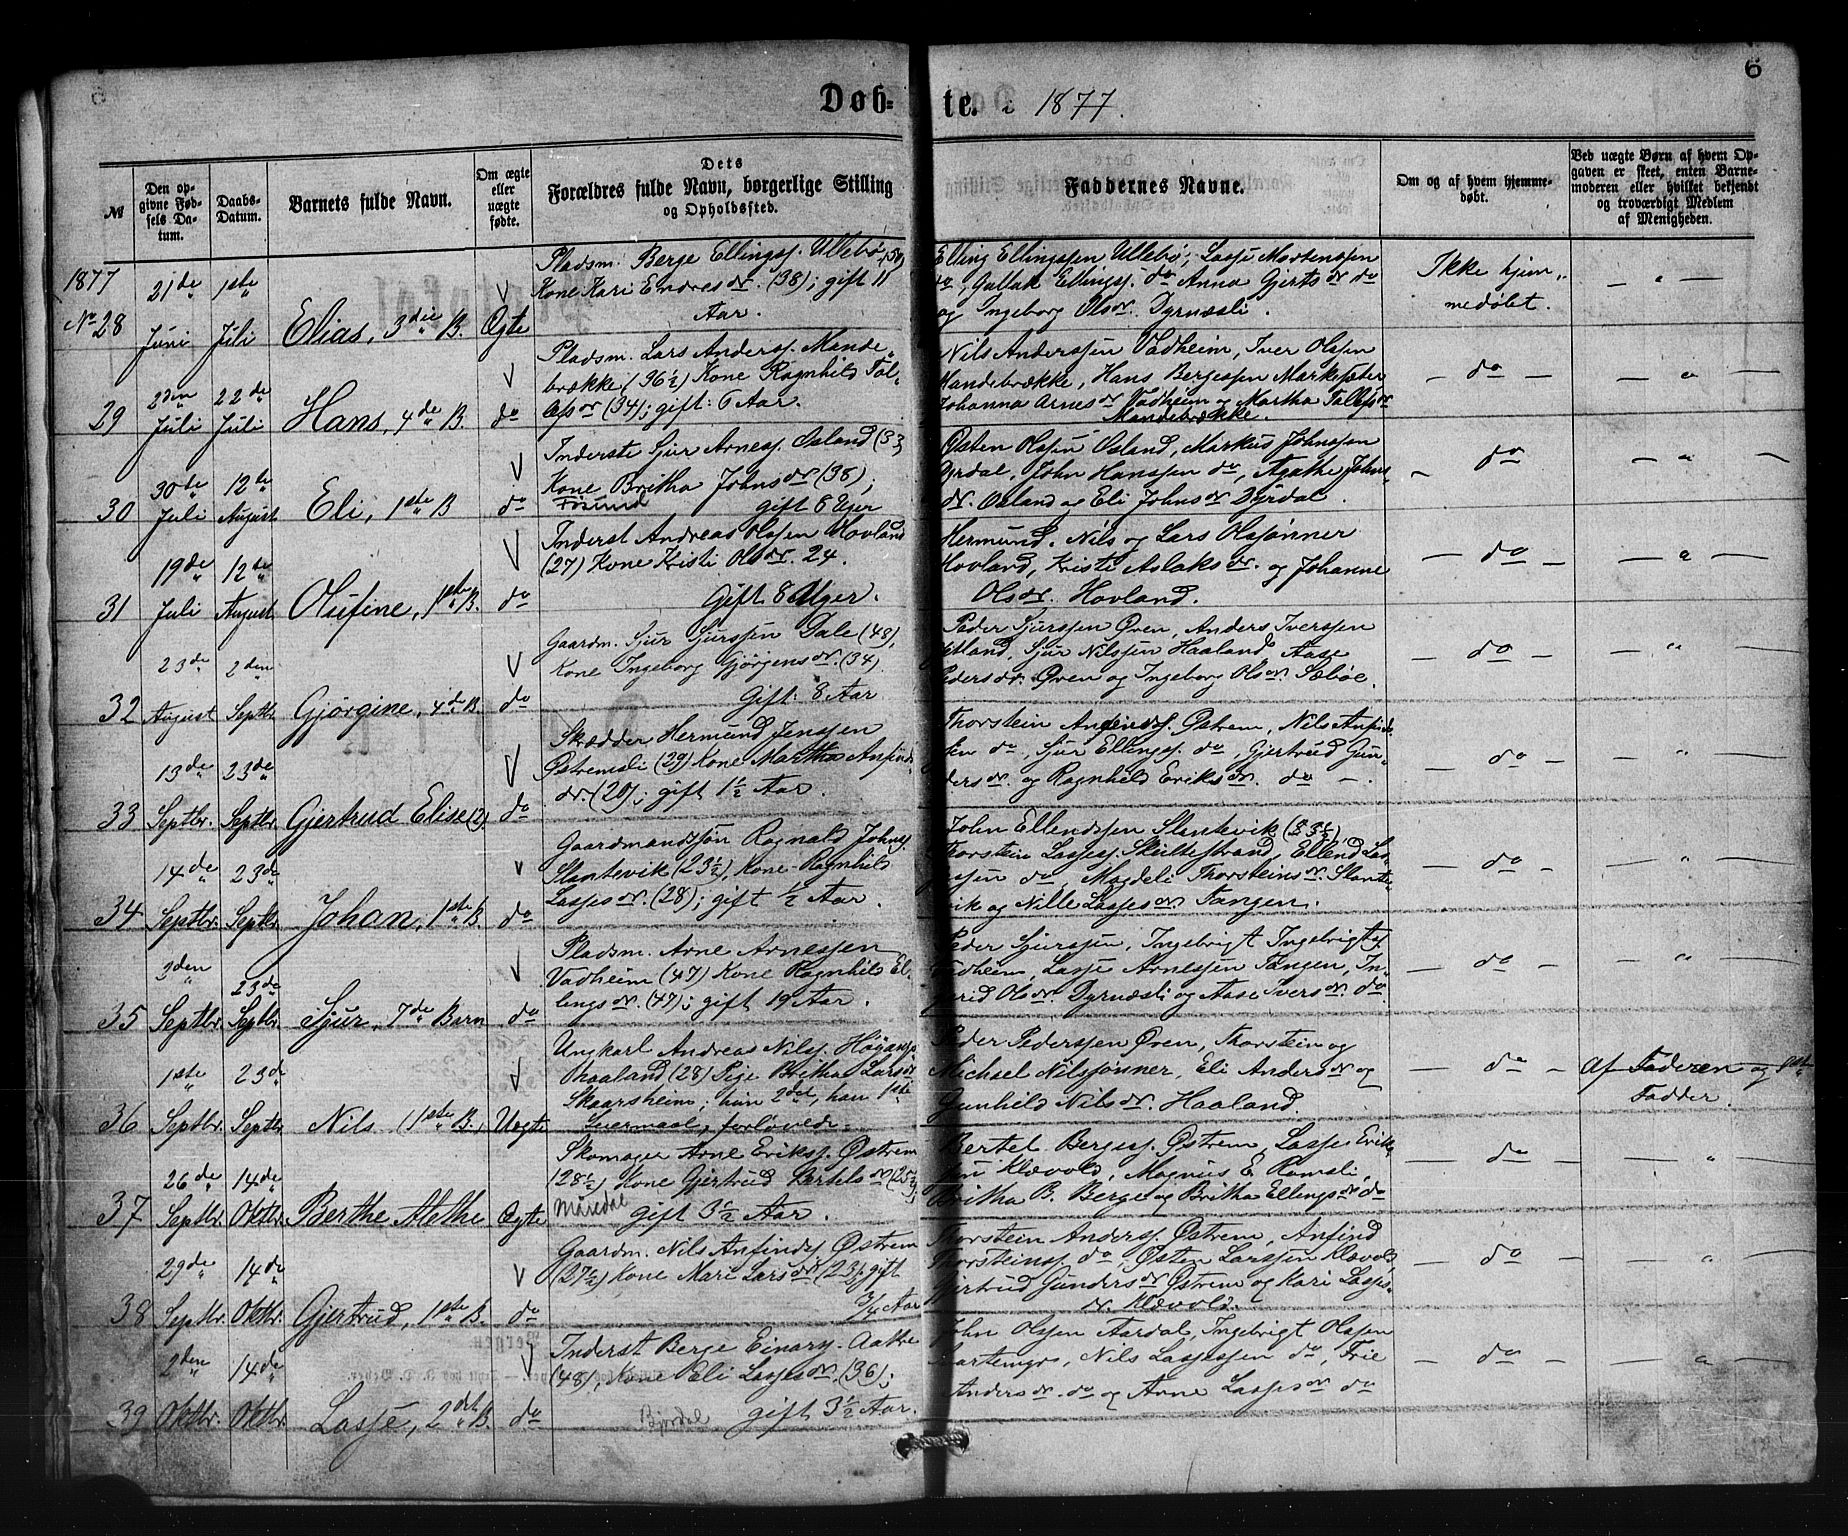 6
Døb= te. i 1877.
№
Den opgivne Fødsels Datum.
Daabs-Datum.
Barnets fulde Navn.
Om ægte eller uægte fødte.
Dets Forældres fulde Navn, borgerlige Stilling og Opholdssted.
Faddernes Navne.
Om og af hvem hjemmedøbt.
Ved uægte Børn af hvem Opgaven er skeet, enten Barnemoderen eller hvilket bekjendt og troværdigt Medlem af Menigheden.
1877
No 28
21de Juni
1ste Juli
Elias, 3die B.
Ægte
Pladsm. Berge Ellingss. Ullebø
Kone Kari Endresdr. (38); gift 11
Aar.
Elling Ellingssen Ullebø; Lasse Mortenssen
do, Gullak Ellingss. do Anna Gjertsdr do
og Ingeborg Olsdr. Dyrnæsli.
Ikke hjem-
medøbt.
— " —
29
2den Juli
22de Juli
Hans, 4de B.
do
Pladsm. Lars Anderss. Mande-
brække (36½) Kone Ragnhild Tol-
lefsdr (34); gift: 6 Aar.
Nils Anderssen Vadheim, Iver Olssen
Mandebrække, Hans Bergessen Markesæter
Johanna Arnesdr Vadheim og Martha Tollefsdr
Mandebrække.
— do —
— " —
30
30de Juli
12te August
Eli, 1ste B
do
Inderste Sjur Arness. Osland (33
Kone Britha Johnsdr (38);
gift 8 Uger
Østen Olssen Osland, Markus Johnssen
Dyrdal, John Hanssen do, Agathe Johns-
dr. Osland og Eli Johnsdr Dyrdal.
— do —
— " —
31
19de Juli
12te August
Olufine, 1ste B.
do
Inderst Andreas Olssen Hovland
(27) Kone Kristi Olsdr. 24.
Gift 8 Uger.
Hermund, Nils og Lars Olssønner
Hovland, Kristi Aslaksdr. og Johanne
Olsdr. Hovland.
— do —
— " —
32
23de August
2den Septbr
Gjørgine, 4de B.
do
Gaardm. Sjur Sjurssen Dale (48),
Kone Ingeborg Gjørgensdr. (34)
Gift: 8 Aar.
Peder Sjurssen Øren, Anders Iverssen
Sjur Nilssen Haaland Aase
Pedersdr. Øren og Ingeborg Olsdr. Sæbøe.
— do —
— " —
33
13de Septbr.
23de Septbr
Gjertrud Elise (2)
do
Skrædder Hermund Jenssen
Østremsli (29) Kone Martha Anfinds-
dr. (20); gift 1½ Aar.
Thorstein Anderss. Østrem, Nils Anfinds-
sen do, Sjur Ellingss. do, Gjertrud Gun-
dersdr. og Ragnhild Eriksdr. do —.
— do —
— " —
34
14de Septbr.
23de Septbr
Johan, 1ste B.
do
Gaardmandssøn Ragnald Johnss.
Slantevik (23½), Kone Ragnhild
Lassesdr. (28); gift ½ Aar.
John Ellendssen Slantevik (23½)
Thorstein Lasses. Skiltestrand, Ellend Las-
sessen do, Magdeli Thorsteinsdr. Slante-
vik og Nille Lassesdr Tangen.
— do —
— " —
35
3den Septbr.
23de Septbr.
Sjur, 7de Barn
do
Pladsm. Arne Arnessen
Vadheim (47) Kone Ragnhild El-
lingsdr. (47); gift 19 Aar.
Peder Sjurssen, Ingebrigt Ingebrigtss.
Vadheim, Lasse Arnessen Tangen, In-
gerid Olsdr. Dyrnæsli og Aase Iversdr. do
— do —
— " —
36
1ste Septbr.
23de Septbr.
Nils (1ste B.)
Uægte
Ungkarl Andreas Nilss.
Haaland (28) Pige Britha Larsdr
Skaarsheim; hun 2det, han 1ste
Leiermaal, forlovede.
Peder Pederssen Øren, Thorstein og
Michael Nilssønner, Eli Andersdr og
Gunhild Nilsdr. Haaland.
— do —
Af Faderen og 1ste
Fadder.
37
26de Septbr.
14de Oktbr.
Berthe Alethe
Ægte
Skomager Arne Erikss. Østrem
(28½) Kone Gjertrud Bertelsdr (25½)
Maredal gift 3½ Aar.
Bertel Bergess. Østrem, Lasse Erik-
sen Klævold, Magnus E. Ramsli
Britha B. Berge og Britha Ellingsdr, do
— do —
— " —
38
29de Septbr.
14de Oktbr.
Gjertrud, 1ste B.
do
Gaardm. Nils Anfindss. Østrem
(27½) Kone Mari Larsdr. (23); gift
3/4 Aar
Thorstein Anderss. Østrem, Anfind
Thorsteinss. do, Østen Larssen Klævold
Gjertrud Gundersdr Østrem og Kari Lasses-
dr. Klævold.
— do —
— " —
39
2den Oktbr.
14de Oktbr.
Lasse, 2det B.
do
Inderst Berge Einarss. Aakre
(48), Kone Eli Lassesdr. (36);
Bjordal gift 3½ Aar.
John Olssen Aardal, Ingebrigt Olssen
Svartemyr, Nils Lassessen do,
Andersdr. do og Arne Lassesdr do
— do —
— " —